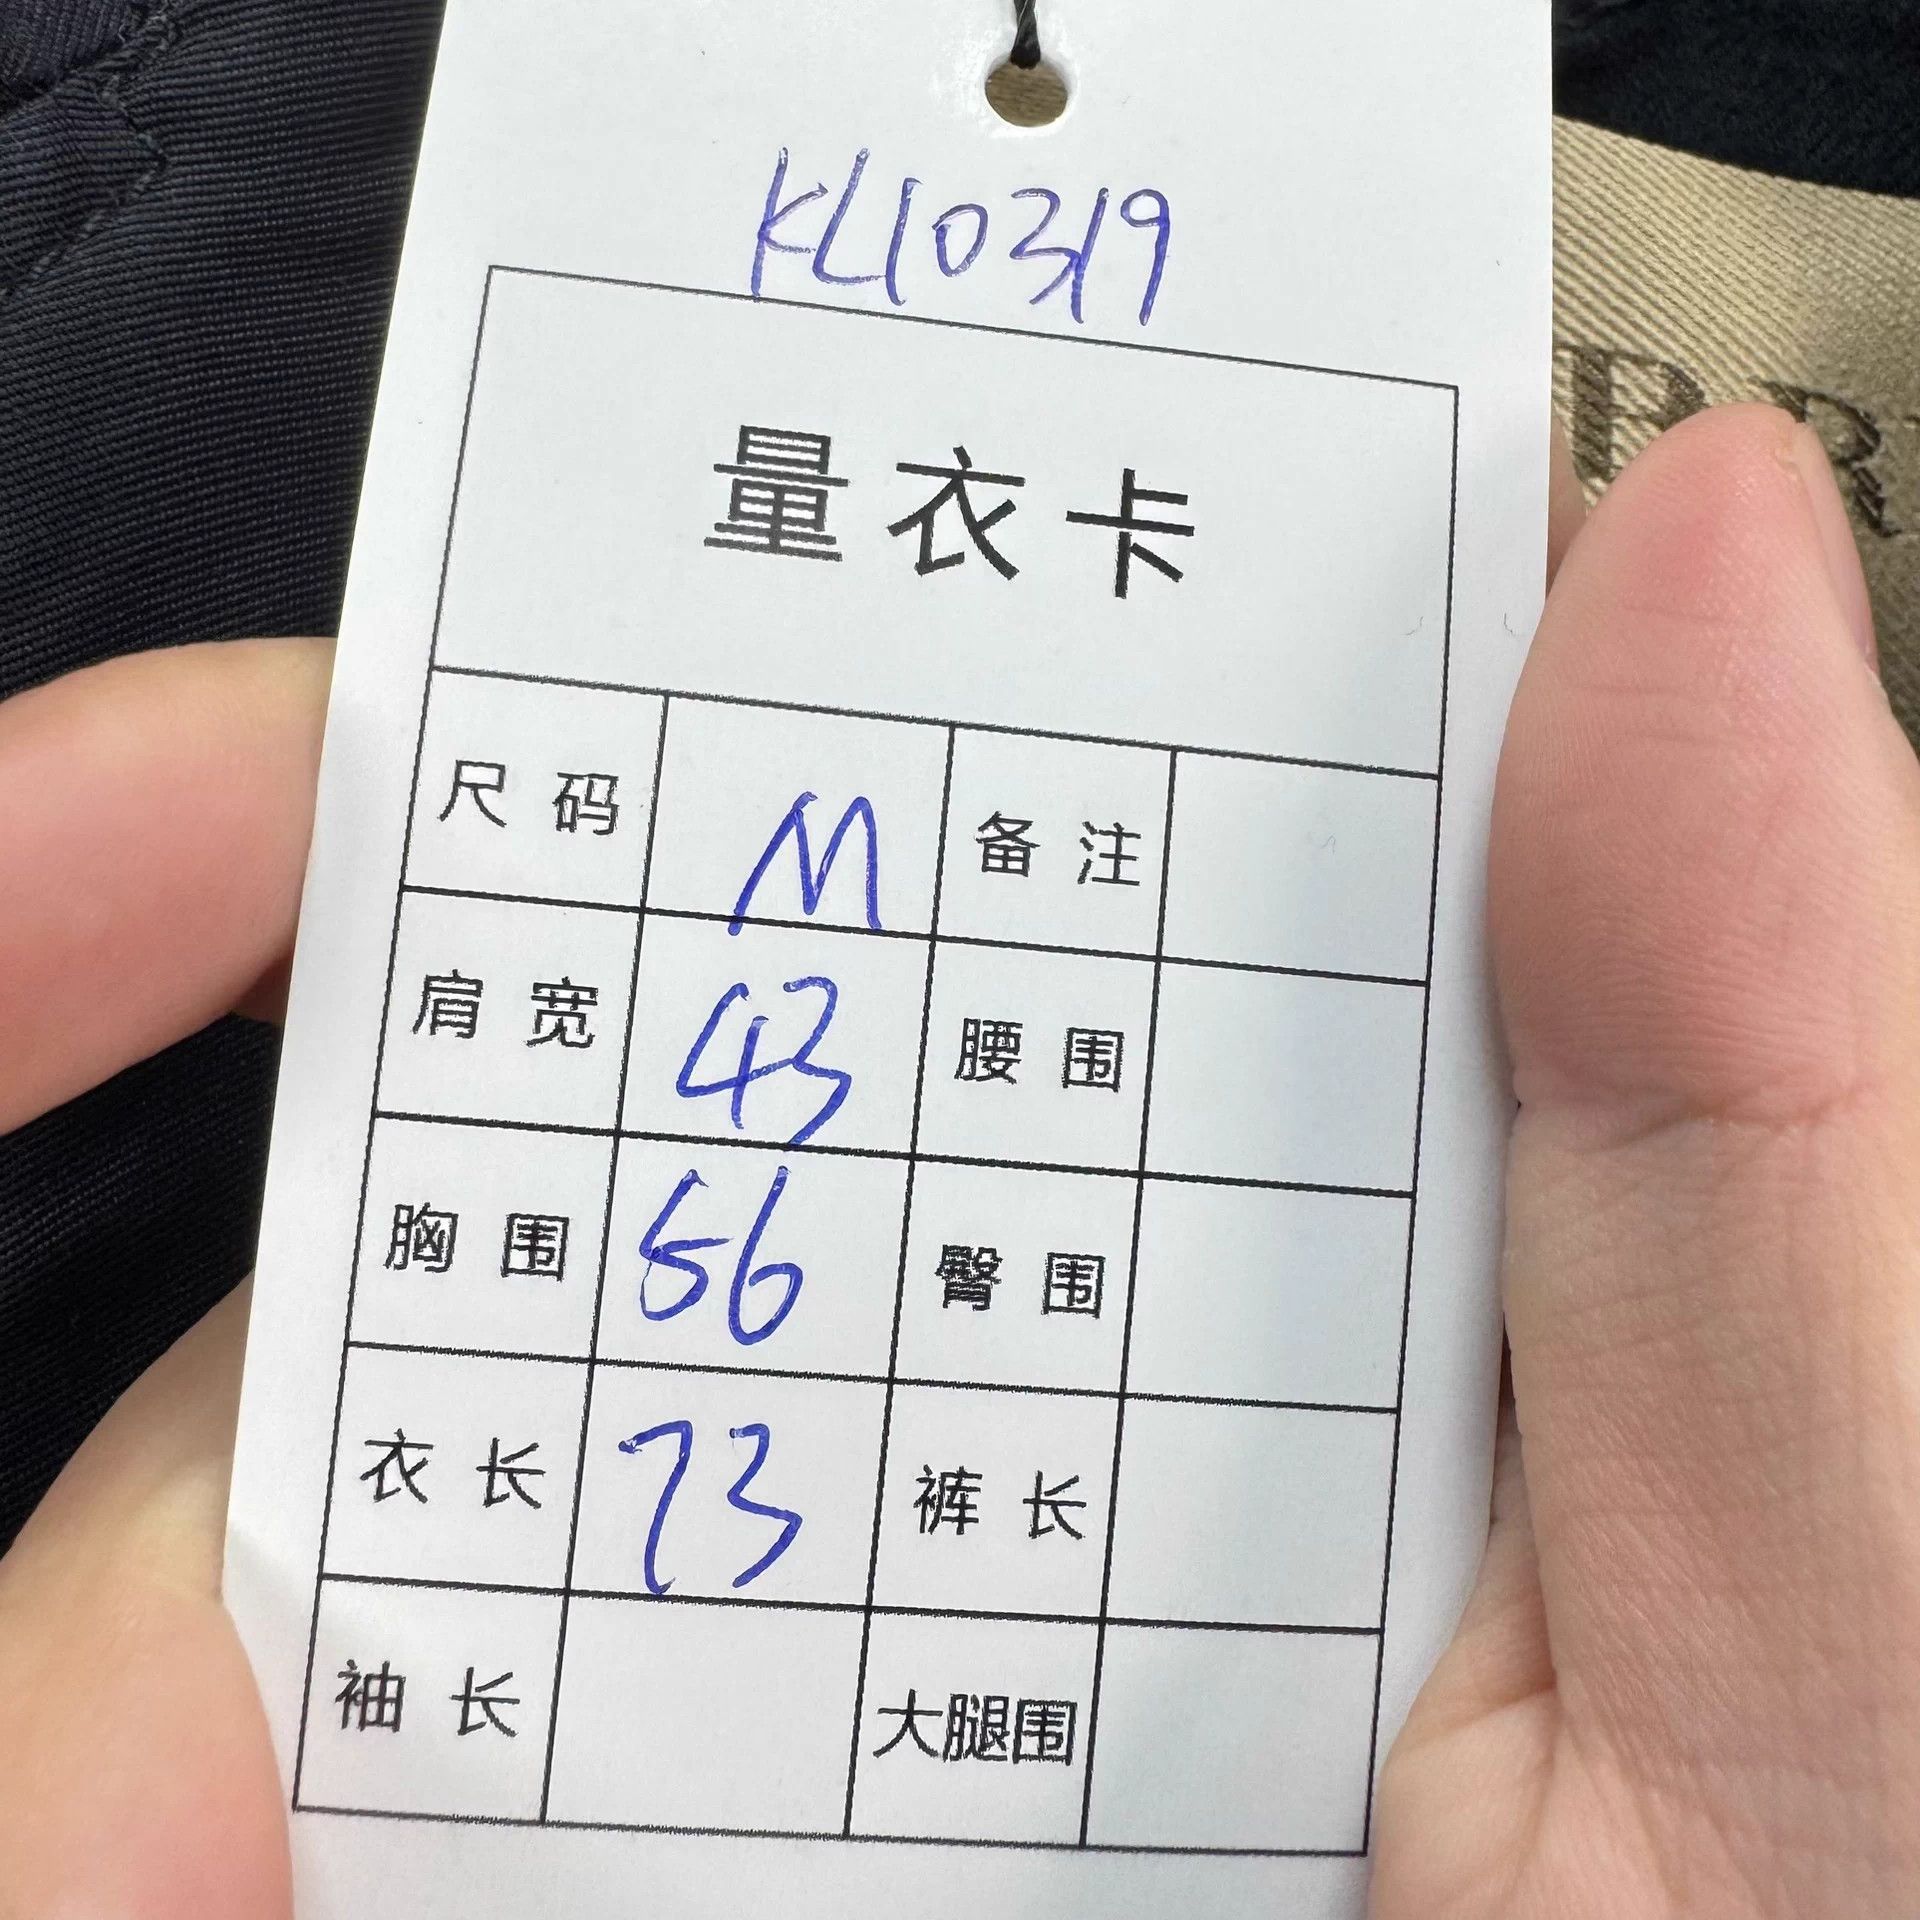 KL10319
量衣卡
尺码 M 备注
肩宽 43 腰围
胸围 56 臀围
衣长 73 裤长
袖长 大腿围